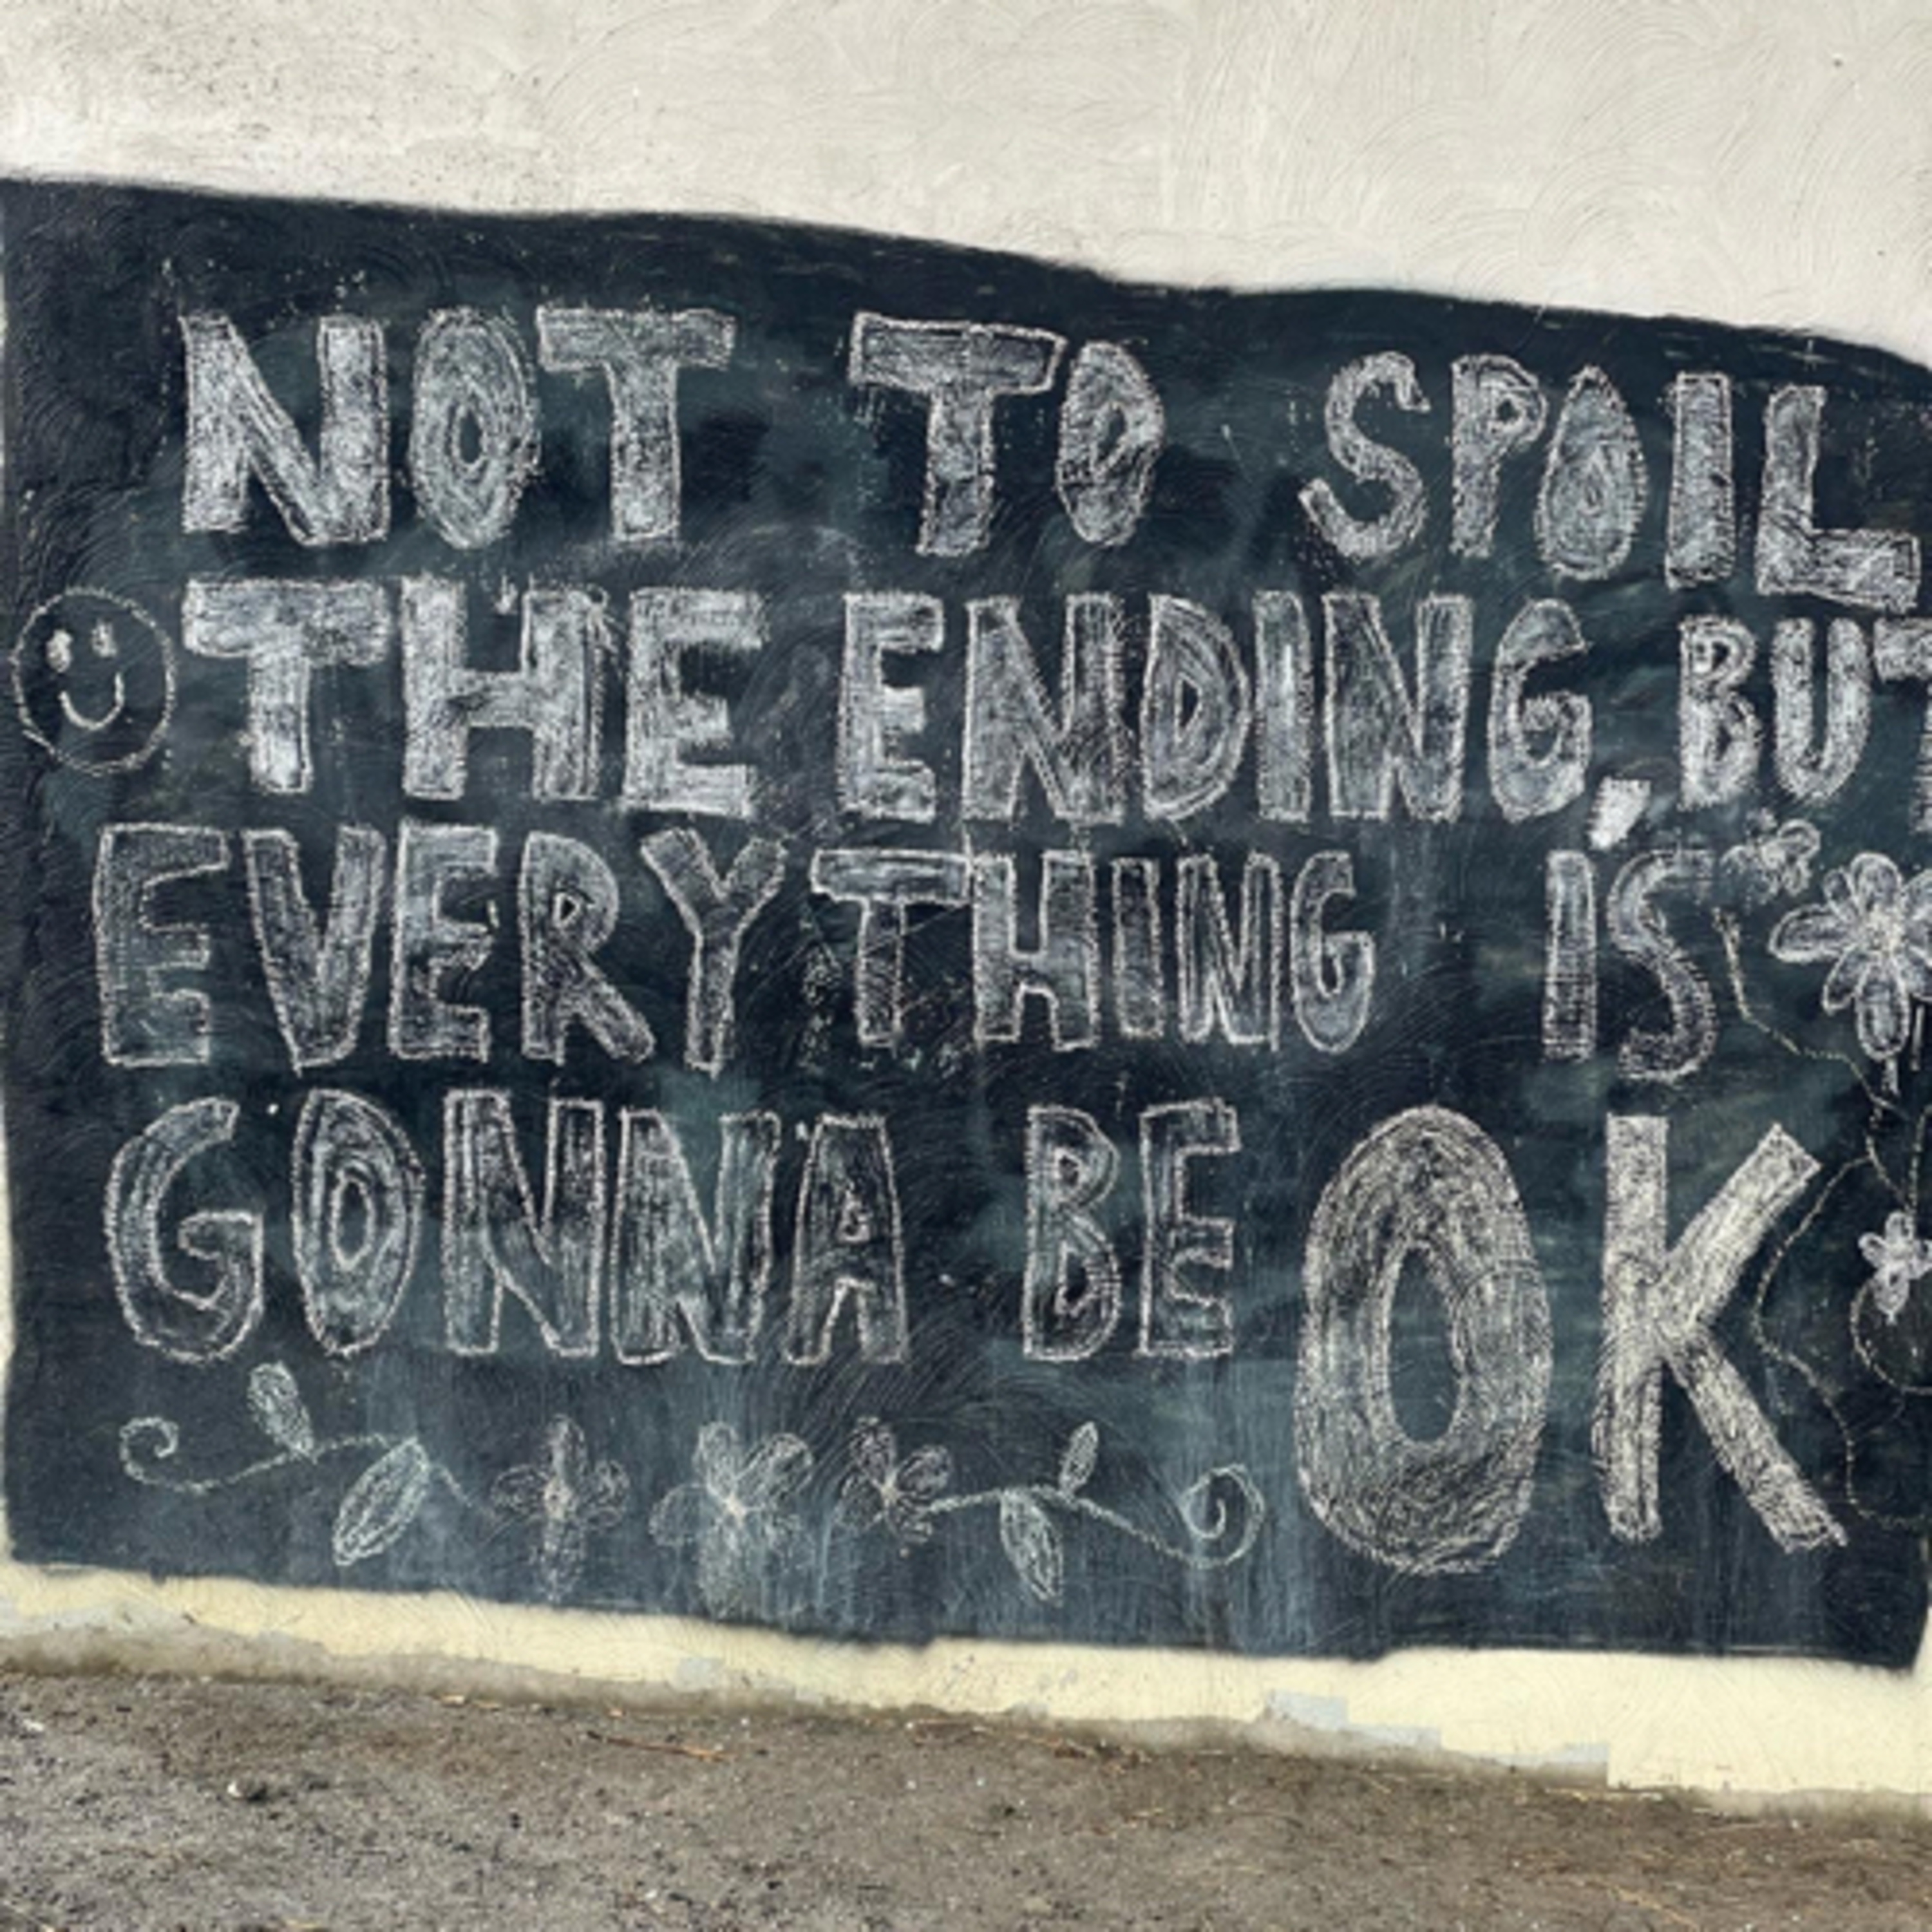 NOT TO SPOIL
THE ENDING, BUT
EVERYTHING IS
GONNA BE OK